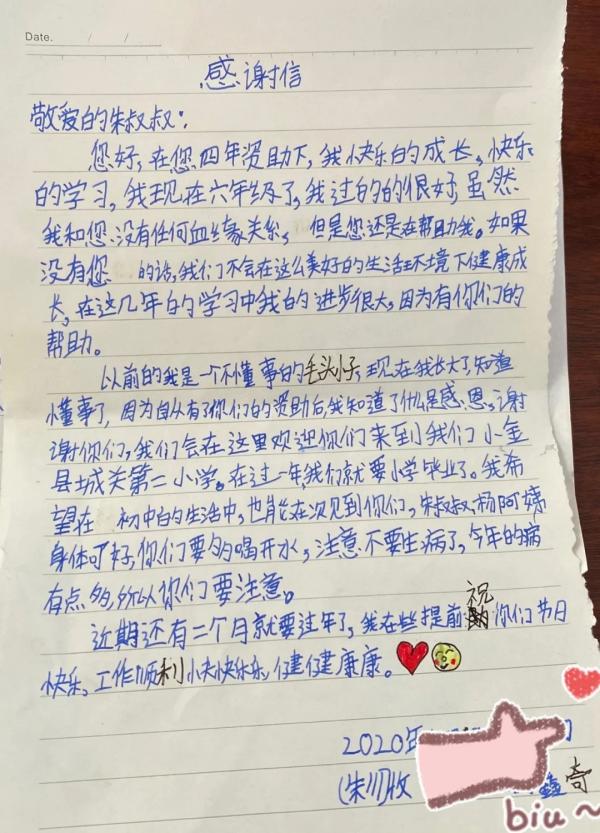 Date. / /
感谢信
敬爱的朱叔叔:
您好,在您四年资助下,我快乐的成长,快乐
的学习,我现在六年级了,我过的的很好,虽然
我和您没有任何血缘关系,但是您还是在帮助我。如果
没有您 的话,我们不会在这么美好的生活环境下健康成
长,在这几年的学习中我的进步很大,因为有你们的
帮助。
以前的我是一个不懂事的毛头小子,现在我长大了,知道
懂事了,因为自从有了你们的资助后,我知道了什么是感恩。谢
谢你们,我们会在这里欢迎你们来到我们小金
县城关第二小学。在过一年,我们就要小学毕业了。我希
望在 初中的生活中,也能在次见到你们,朱叔叔,杨阿姨
身体可好,你们要多喝开水,注意不要生病了,今年的病
有点多,所以你们要注意。
近期还有二个月就要过年了,我在些提前祝你们节日
快乐,工作顺利,快快乐乐,健健康康。
2020年
(朱川)收
鑫奇
biu~